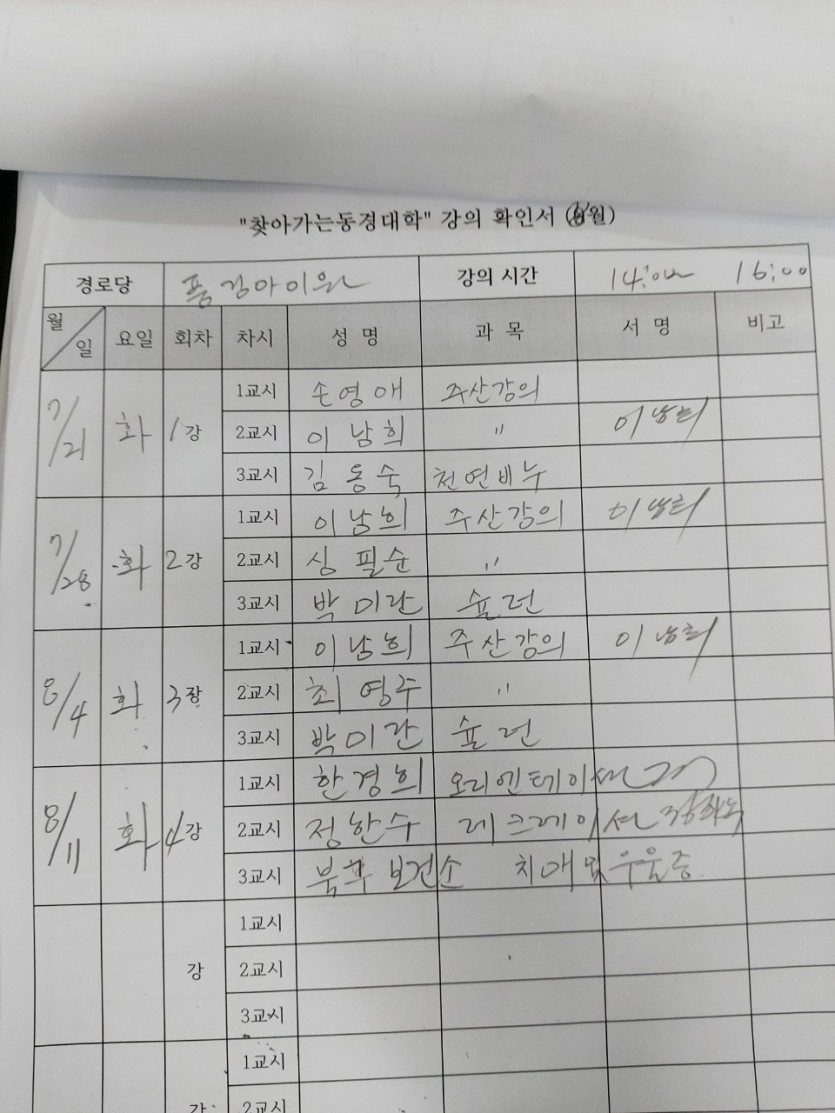 "찾아가는동경대학" 강의 확인서 (월)
경로당 풍경아이원 강의 시간 14:00 16:00
월/일 요일 회차 차시 성 명 과 목 서 명 비고
7/21 화 1강 1교시 손영애 주산강의
2교시 이남희 〃 이남희
3교시 김동숙 천연비누
7/28 화 2강 1교시 이남희 주산강의 이남희
2교시 심필순 〃
3교시 박미란 술떤
8/4 화 3강 1교시 이남희 주산강의 이남희
2교시 최영주 〃
3교시 박미란 술떤
8/11 화 4강 1교시 한경희 오리엔테이션
2교시 정한수 레크레이션
3교시 북구 보건소 치매 및 우울증
1교시
강 2교시
3교시
1교시
강 2교시